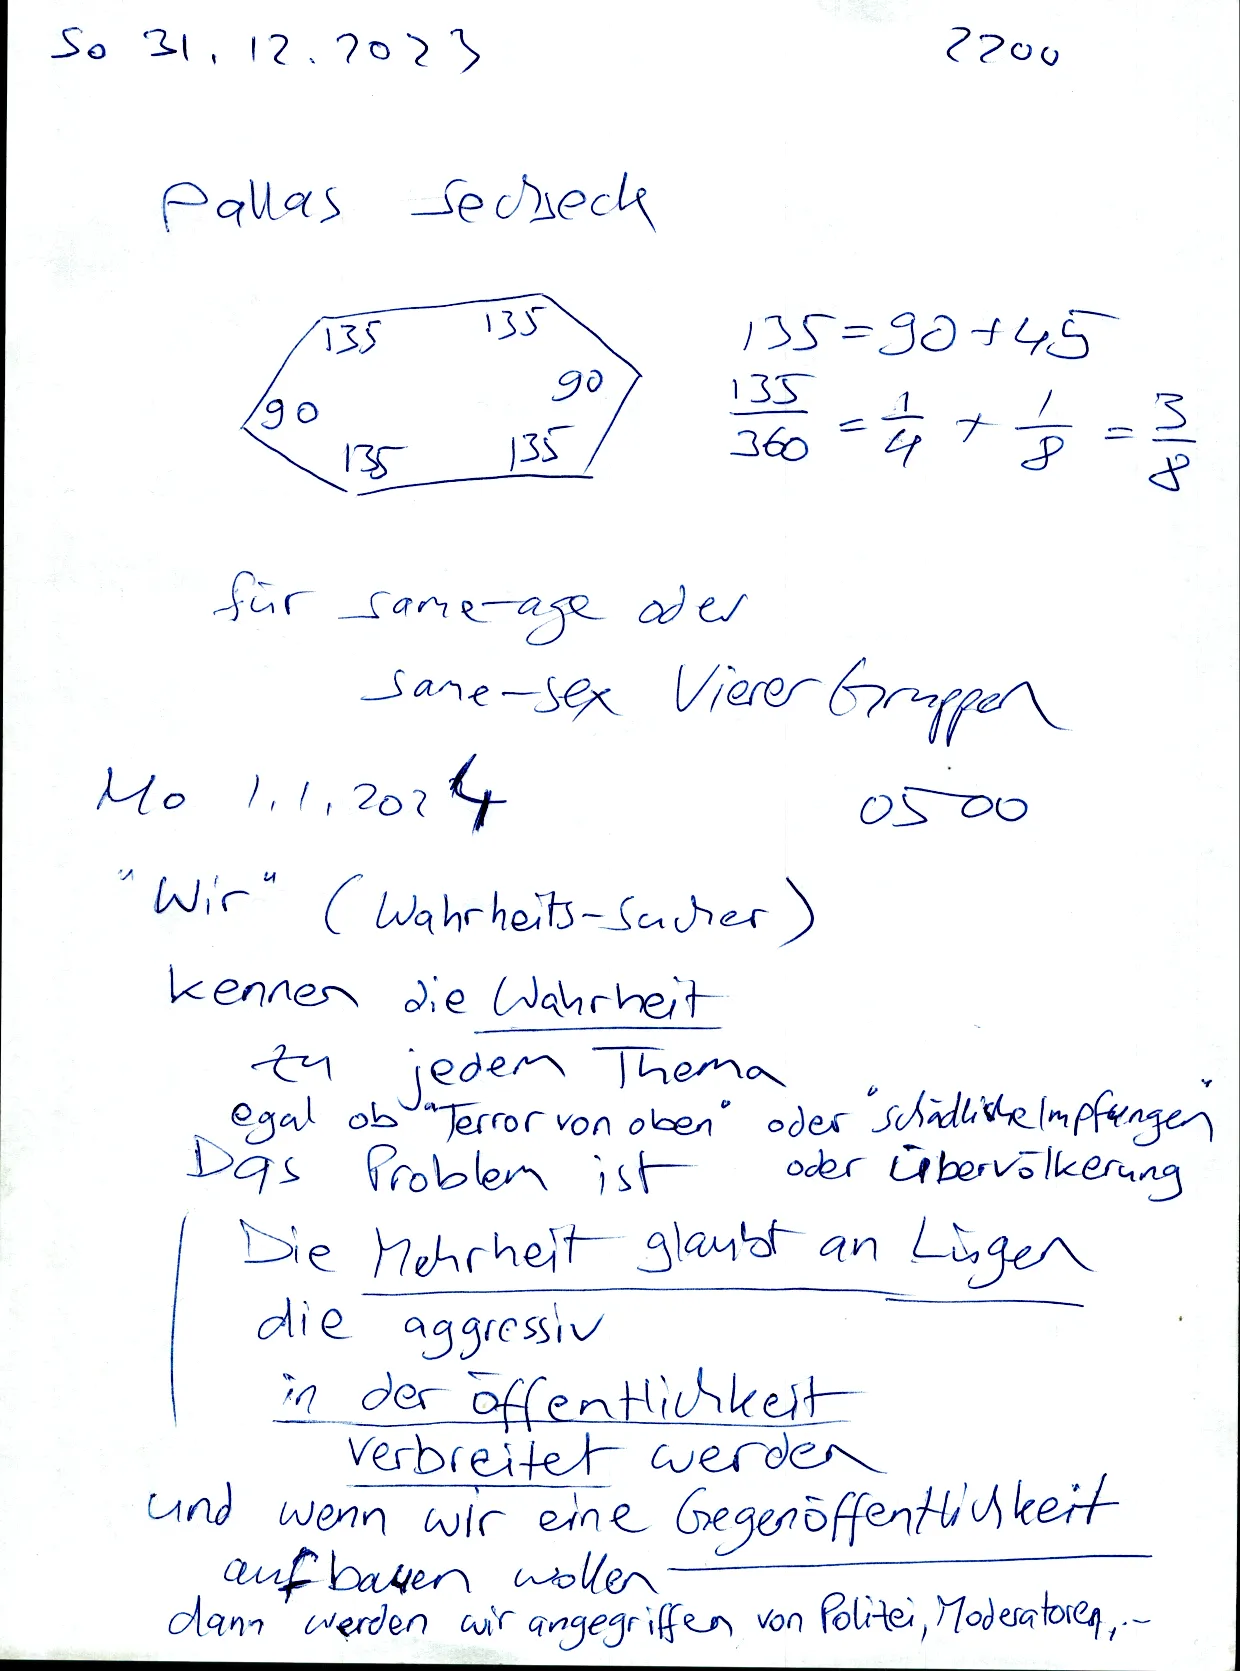 So 31.12.2023 2200
Pallas Sechseck
135 135
90 90
135 135
135 = 90 + 45
135/360 = 1/4 + 1/8 = 3/8
für same-age oder
same-sex Vierer Gruppen
Mo 1.1.2024 0500
"Wir" (Wahrheits-Sucher)
kennen die Wahrheit
zu jedem Thema
egal ob "Terror von oben" oder "schädliche Impfungen"
oder Übervölkerung
Das Problem ist
Die Mehrheit glaubt an Lügen
die aggressiv
in der Öffentlichkeit
verbreitet werden
und wenn wir eine Gegenöffentlichkeit
aufbauen wollen
dann werden wir angegriffen von Politei, Moderatoren, ..